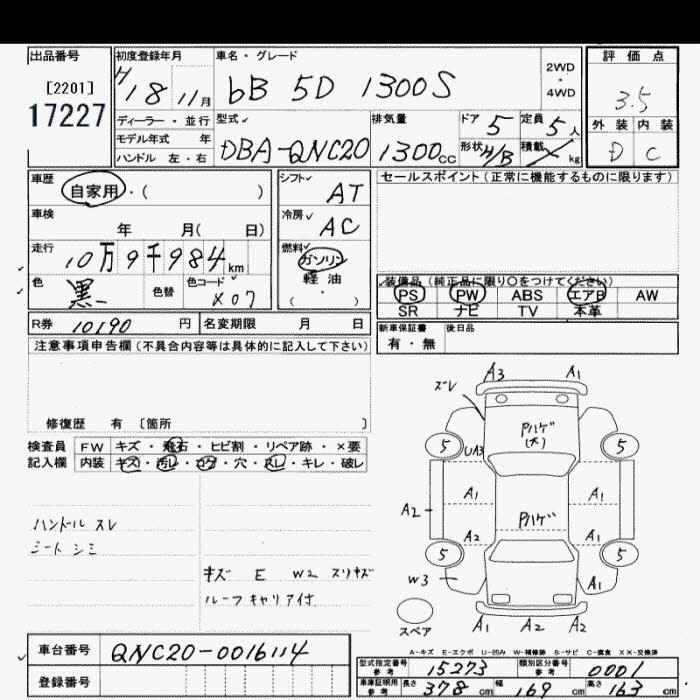 出品番号
[2201]
17227
初度登録年月
H18 11月
ディーラー・並行
モデル年式 年
ハンドル 左・右
車名・グレード
bB 5D 1300S
2WD
・
4WD
型式
DBA-QNC20
排気量
1300cc
ドア 5
形状 H/B
定員 5人
積載 kg
評価点
3.5
外装 内装
D C
車歴
自家用・( )
車検
年 月( 日)
走行
10万9千984km
色 黒 色替 色コード X07
R券 10190円 名変期限 月 日
シフト
AT
冷房
AC
燃料
ガソリン
軽油
( ・ )
セールスポイント(正常に機能するものに限ります)
装備品(純正品に限り○をつけてください)
PS PW ABS エアB AW
SR ナビ TV 本革
新車保証書
有・無
後日品
注意事項申告欄(不具合内容等は具体的に記入して下さい)
修復歴 有 〔箇所 〕
検査員
記入欄
FW キズ・飛石・ヒビ割・リペア跡・×要
内装 キズ・汚レ・コゲ・穴・スレ・キレ・破レ
ハンドル スレ
シート シミ
キズ E W2 スリキズ
ルーフキャリア付
A3 A1
ズレ
Pハゲ
(大)
5 5
UA3
A1 A1
A2
Pハゲ
A2 A1
5 5
W3 A1
スペア
A1 A2 A2
A-キズ E-エクボ U-凹み W-補修跡 S-サビ C-腐食 XX-交換済
車台番号 QNC20-0016114
登録番号
型式指定番号
参考
15273
類別区分番号
参考
0001
車庫証明用
参考
長さ 378cm 幅 169cm 高さ 163cm